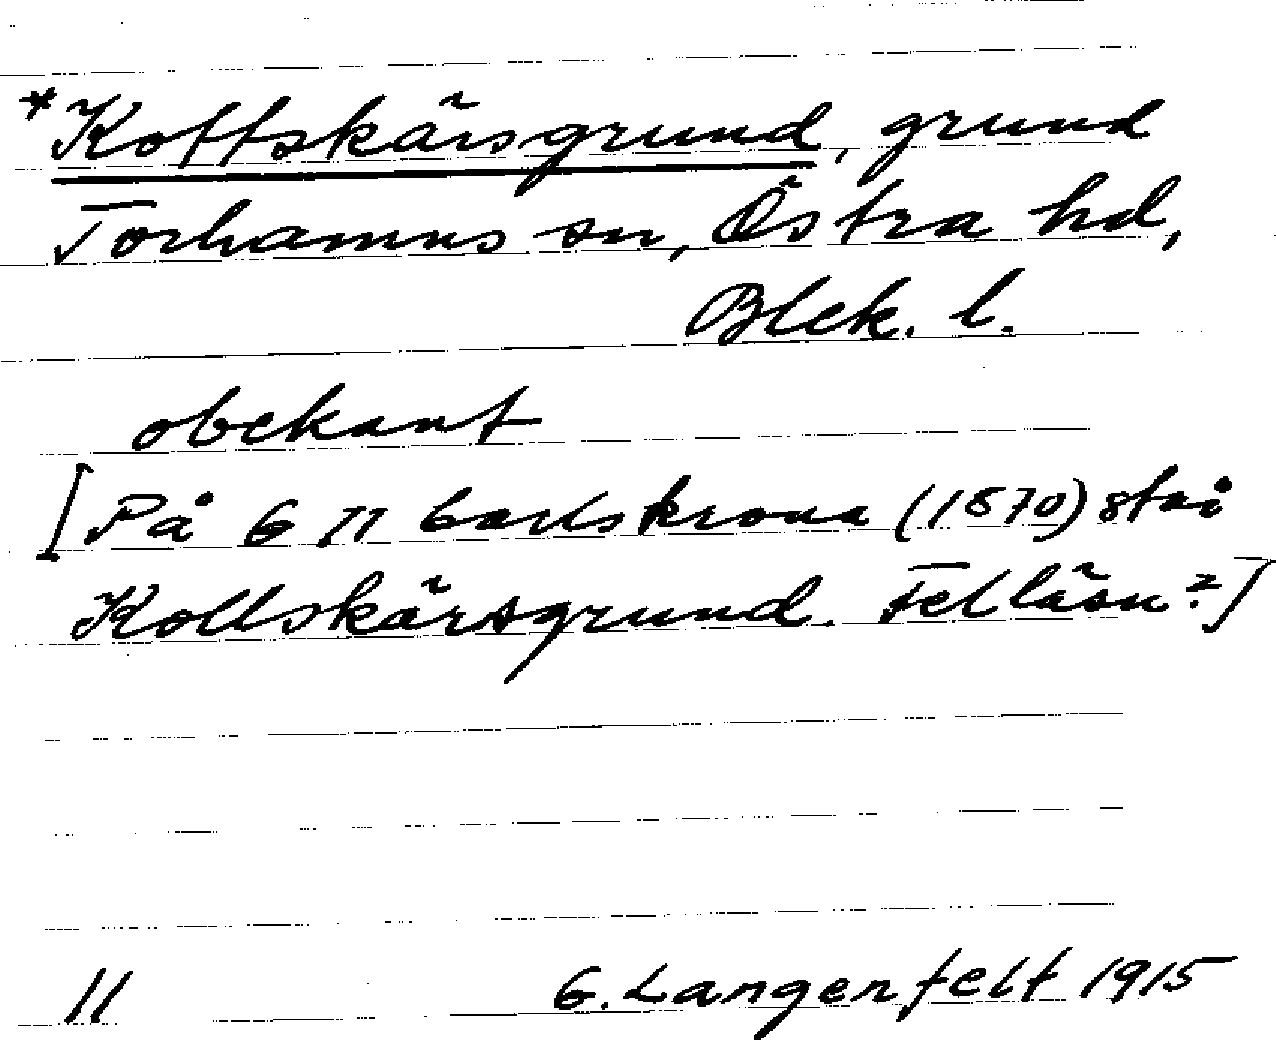 *Koffskärsgrund, grund
Torhamns sn, Östra hd,
Blek. l.
obekant
[På G 11 Carlskrona (1870) står
Kollskärsgrund. Felläsn?]
11 G. Langenfelt 1915